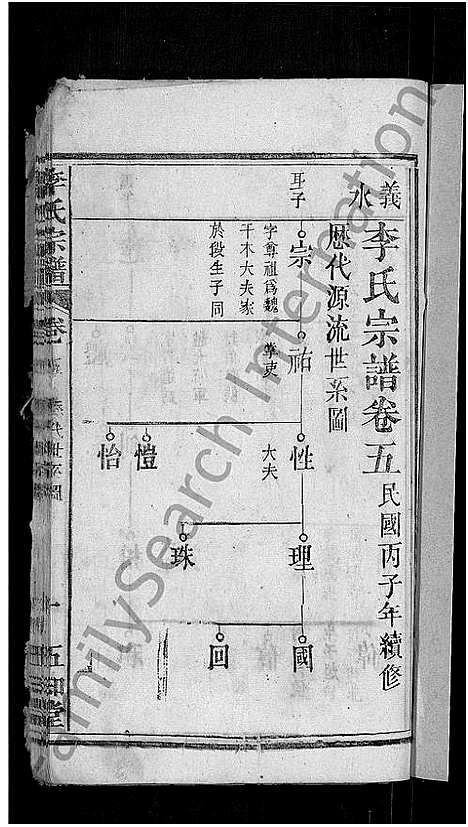 義水
李氏宗譜卷五
民國丙子年續修
歷代源流世系圖
耳子
宗
字尊祖爲魏
干木大夫家
於段生子同
祐
性
大夫
愷
怡
理
珠
國
回
李氏宗譜
卷
一
FamilySearch International